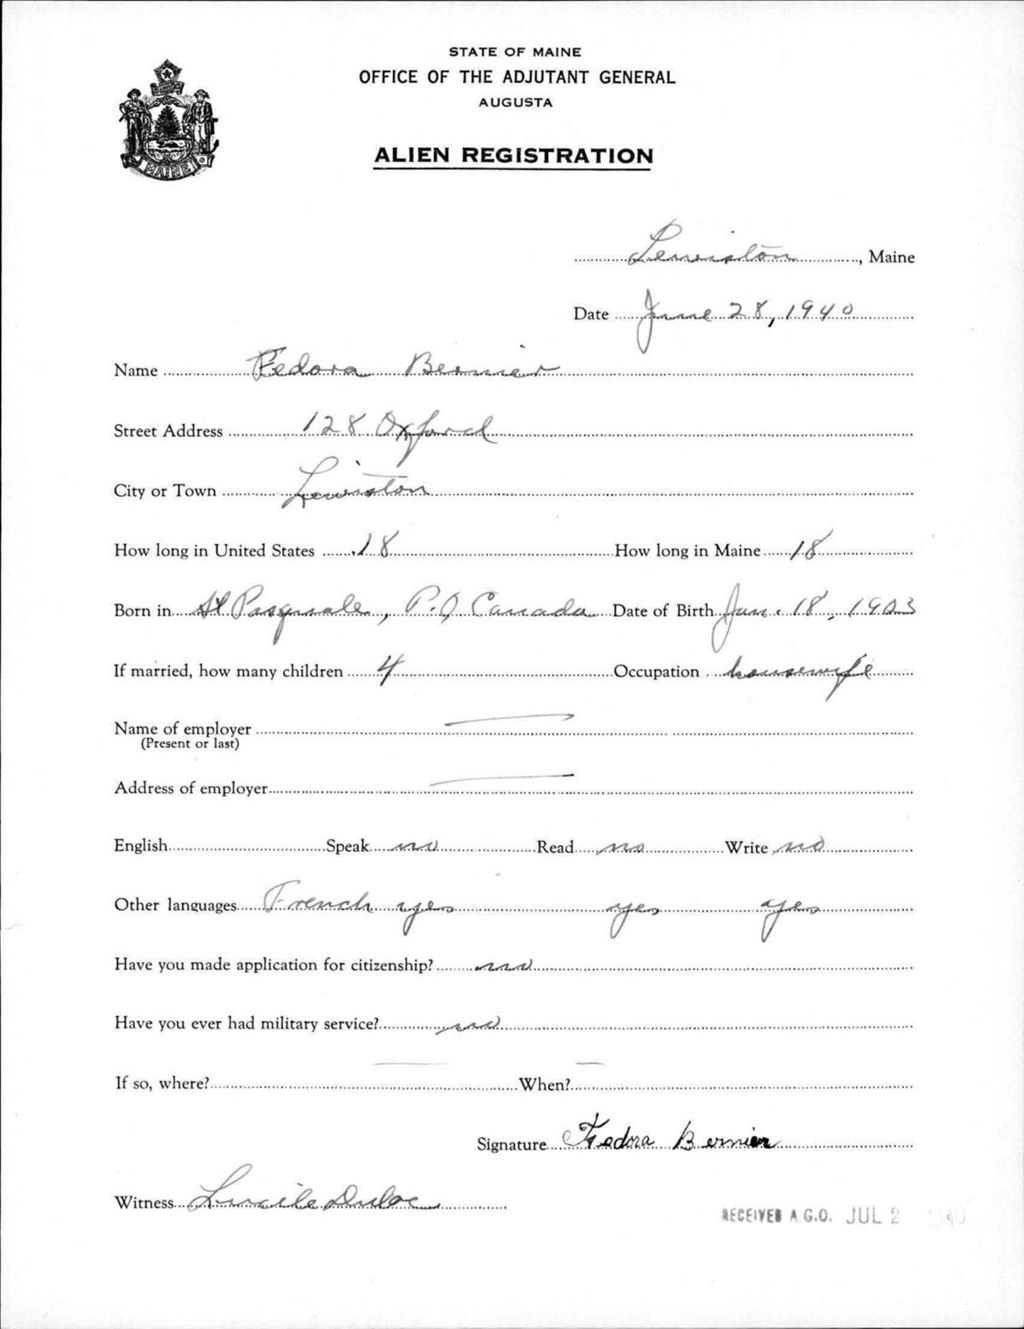 STATE OF MAINE
OFFICE OF THE ADJUTANT GENERAL
AUGUSTA
ALIEN REGISTRATION
MAINE
Lewiston, Maine
Date June 28, 1940
Name Fedora Bernier
Street Address 128 Oxford
City or Town Lewiston
How long in United States 18 How long in Maine 18
Born in St Pasquale, P.Q Canada Date of Birth Jan. 18, 1903
If married, how many children 4 Occupation housewife
Name of employer
(Present or last)
Address of employer
English Speak no Read no Write no
Other languages French yes yes yes
Have you made application for citizenship? no
Have you ever had military service? no
If so, where? When?
Signature Fedora Bernier
Witness Lucile Duloc
RECEIVED A.G.O. JUL 2 1940